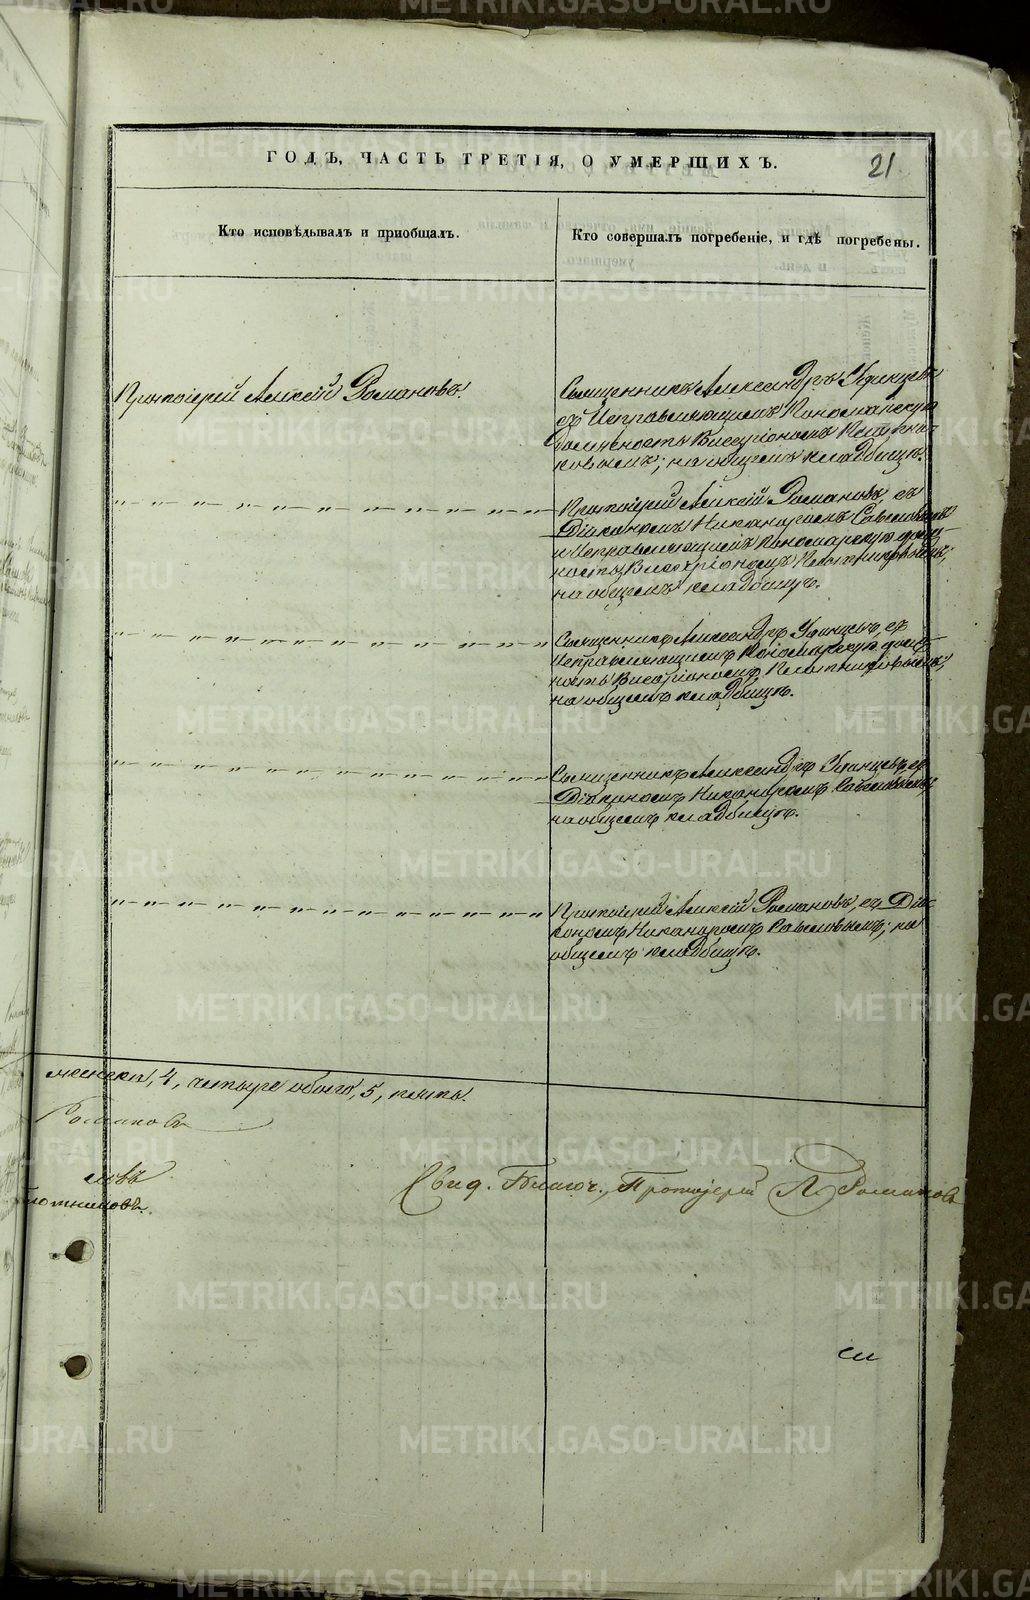 ГОДЪ, ЧАСТЬ ТРЕТІЯ, О УМЕРШИХЪ.
21
Кто исповѣдывалъ и приобщалъ.
Кто совершалъ погребеніе, и гдѣ погребены.
Протоіерей Алексій Романовъ.
Священникъ Александръ Уфинцевъ
съ Исправляющимъ Пономарскую
должность Виссаріономъ Плотни-
ковымъ; на общемъ кладбищѣ.
Протоіерей Алексій Романовъ, съ
Діакономъ Никаноромъ Савеловымъ
и Исправляющимъ Пономарскую долж-
ность Виссаріономъ Плотниковымъ;
на общемъ кладбищѣ.
Священникъ Александръ Уфинцевъ, съ
Исправляющимъ Пономарскую долж-
ность Виссаріономъ Плотниковымъ;
на общемъ кладбищѣ.
Священникъ Александръ Уфинцевъ, съ
Діакономъ Никаноромъ Савеловымъ;
на общемъ кладбищѣ.
Протоіерей Алексій Романовъ, съ Діа-
кономъ Никаноромъ Савеловымъ; на
общемъ кладбищѣ.
женска, 4, четыре обоего, 5, пять.
Романовъ
ловъ
лотниковъ.
Свид. Благоч., Протоіерей А. Романовъ
METRIKI.GASO-URAL.RU